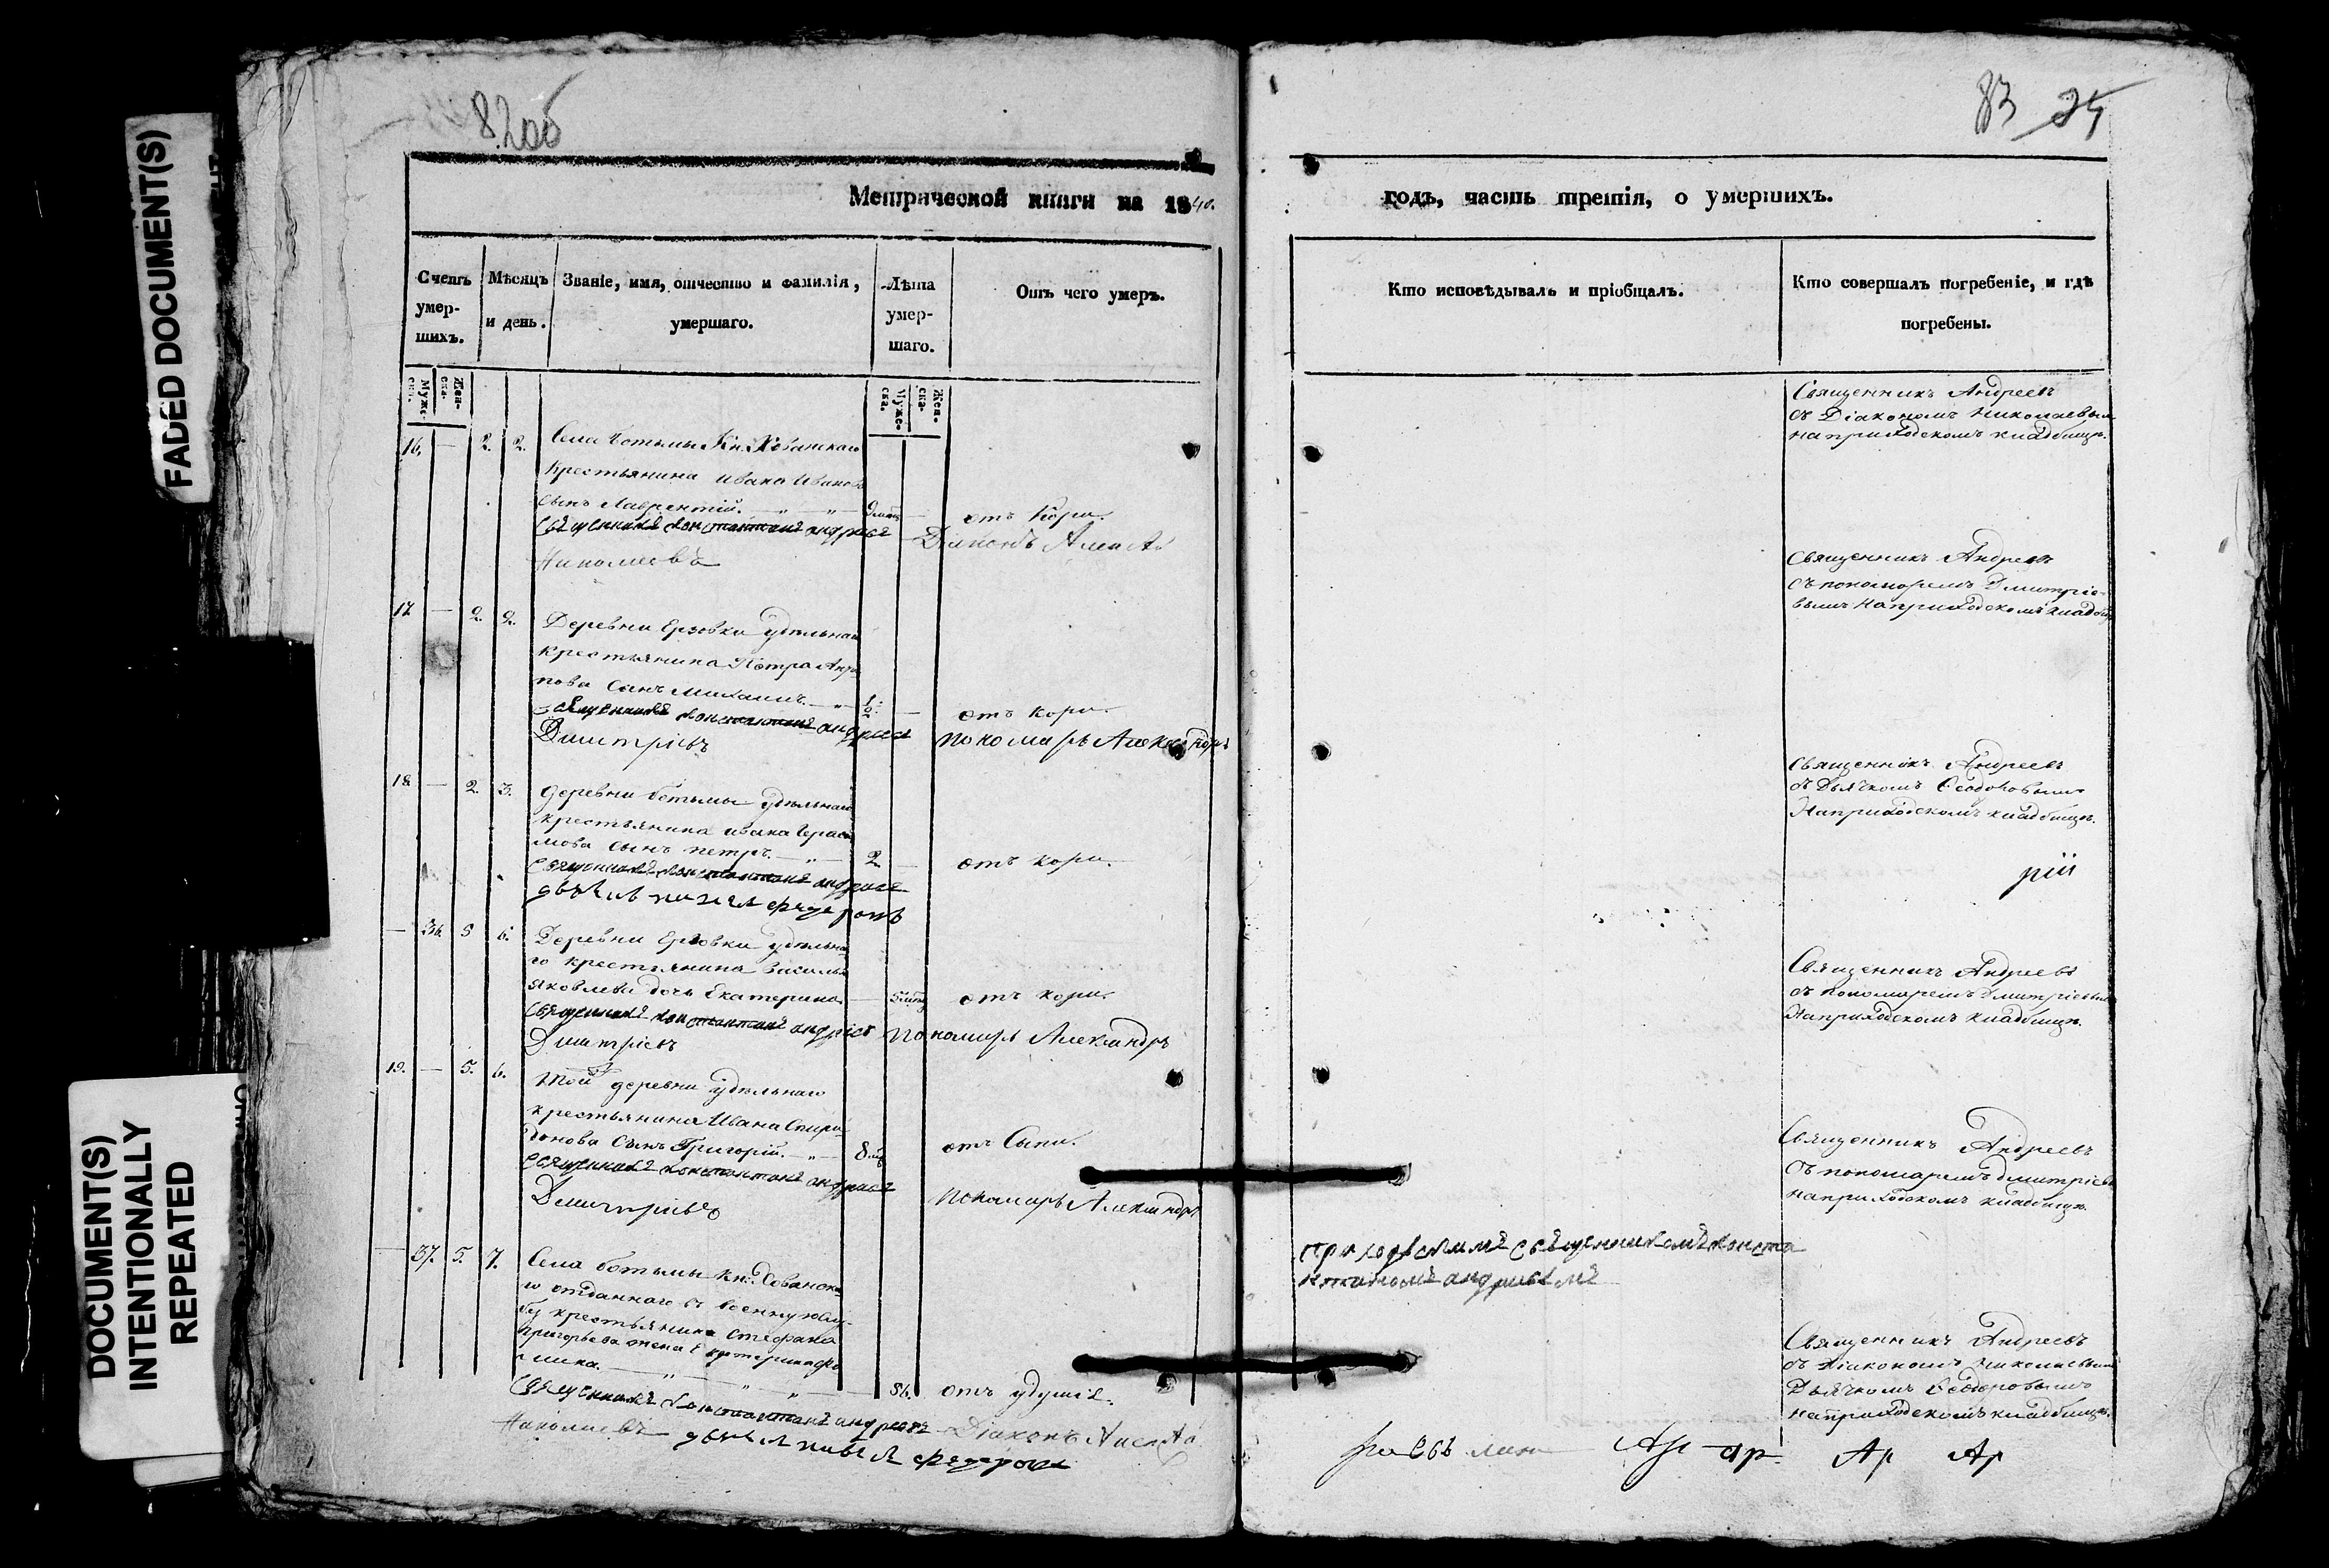 FADED DOCUMENT(S)
DOCUMENT(S)
INTENTIONALLY
REPEATED
82об
Метрической книги на 1840.
Счетъ умер-шихъ.
Мѣсяцъ и день.
Званіе, имя, отчество и фамилія, умершаго.
Лѣта умер-шаго.
Отъ чего умеръ.
Муже-ска.
Жен-ска.
Муже-ска.
Жен-ска.
16. — 2. 2. Села Ботьмы Кн. Хованскаго
крестьянина Ивана Иванова
сынъ Лаврентій. — отъ кори.
Священникъ Константинъ Андреевъ Діаконъ
Николаевъ
17 — 2. 2. Деревни Ерзовки удѣльнаго
крестьянина Петра Анти-
пова сынъ Михаилъ. — 1/2 — отъ кори.
Священникъ Константинъ Андреевъ
Димитріевъ пономарь Александръ
18 — 2. 3. деревни Ботьмы удѣльнаго
крестьянина Ивана Гераси-
мова сынъ Петръ. — 2 — отъ кори.
Священникъ Константинъ Андреевъ
дьячекъ Павелъ Федоровъ
— 36. 5 6. Деревни Ерзовки удѣльна-
го крестьянина Василья
Яковлева дочь Екатерина. — 5 мѣс. отъ кори.
Священникъ Константинъ Андреевъ пономарь Александръ
Димитріевъ
19. — 5. 6. Той деревни удѣльнаго
крестьянина Ивана Спири-
донова сынъ Григорій. — 8 мѣс. отъ сыпи.
Священникъ Константинъ Андреевъ
Димитріевъ пономарь Александръ
— 37. 5. 7. Села Ботьмы Кн. Хованска-
го отданнаго въ военную служ-
бу крестьянина Стефана
Григорьева жена Екатерина
— 56. отъ удушія.
Священникъ Константинъ Андреевъ Діаконъ
Николаевъ дьячекъ Павелъ Федоровъ
83 24
годъ, часть третія, о умершихъ.
Кто исповѣдывалъ и пріобщалъ.
Кто совершалъ погребеніе, и гдѣ погребены.
Священникъ Андреевъ
съ Діакономъ Николаевымъ
на приходскомъ кладбищѣ.
Священникъ Андреевъ
съ пономаремъ Димитріе-
вымъ на приходскомъ кладбищѣ
Священникъ Андреевъ
съ Дьячкомъ Ѳеодоровымъ
На приходскомъ кладбищѣ.
рій
Священникъ Андреевъ
съ пономаремъ Димитріевымъ
На приходскомъ кладбищѣ.
Священникъ Андреевъ
съ пономаремъ Димитріевымъ
на приходскомъ кладбищѣ.
Приходскимъ священникомъ Конста
нтиномъ Андреевымъ
Священникъ Андреевъ
съ Діакономъ Николаевымъ
Дьячкомъ Ѳеодоровымъ
на приходскомъ кладбищѣ.
Ар ар Ар Ар